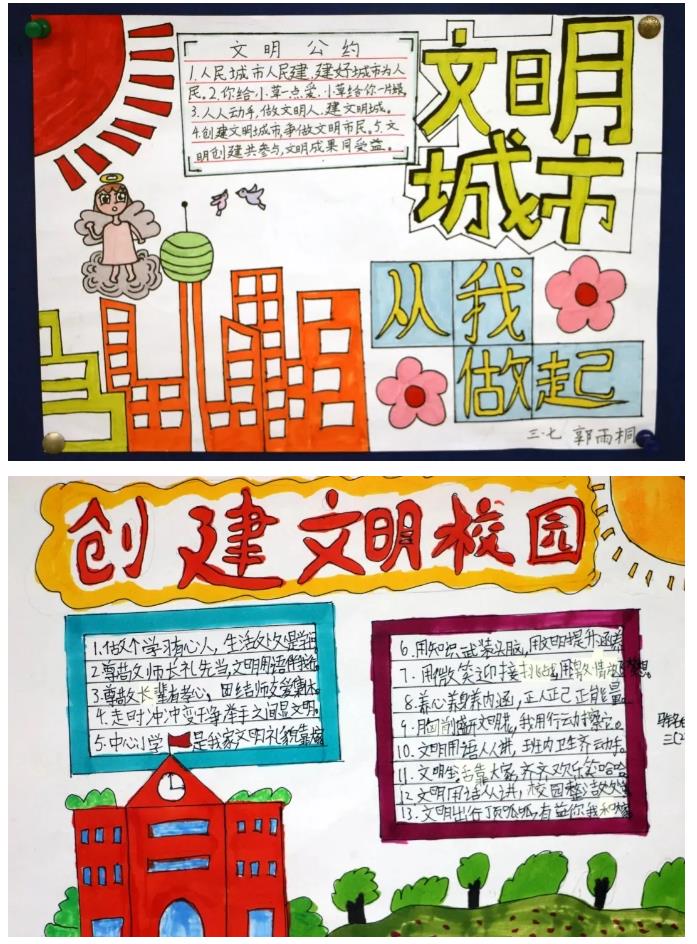 文明公约
1.人民城市人民建,建好城市为人
民。2.你给小草一点爱,小草给你一片绿。
3.人人动手,做文明人,建文明城。
4.创建文明城市,争做文明市民。5.文
明创建共参与,文明成果同受益。
文明
城市
从我
做起
三·七 郭雨桐
创建文明校园
1.做个学习有心人,生活处处是学问。
2尊敬父师长礼先当,文明用语伴我行
3.尊敬长辈有孝心,团结师友爱集体。
4.走时冲冲变干净举手之间显文明。
5.中心小学是我家文明礼貌靠大家
6.用知识武装头脑,用文明提升涵养
7.用微笑迎接挑战,用
8.养心养身养内涵,正人正己正能量。
9.胸前
10.文明用语人人讲,班内卫生齐动手。
11.文明生活靠大家,齐齐欢乐笑哈哈
12文明用语人人讲,校园整洁
13.文明出行顶呱呱,有益你我和